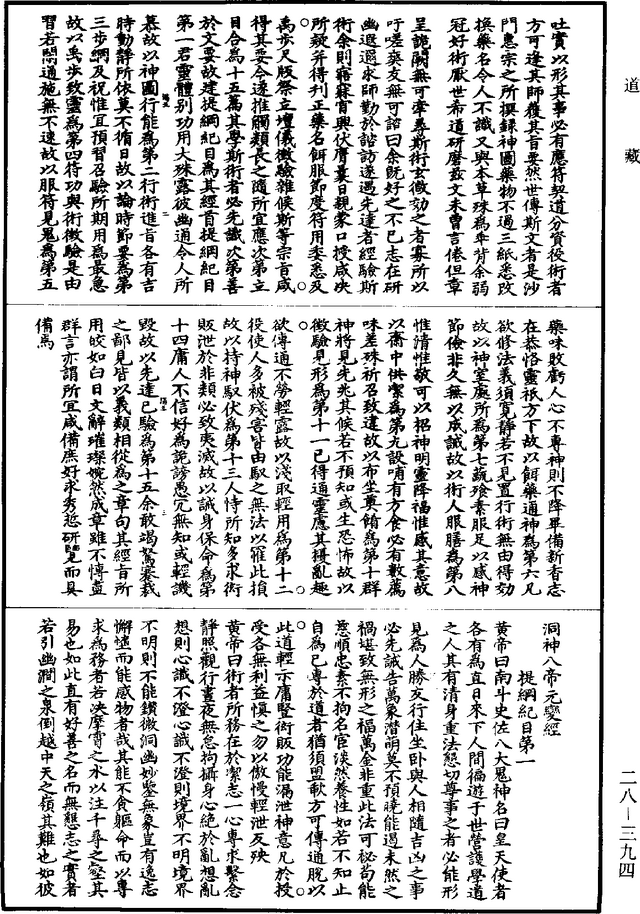 道藏
吐實以形其事必有應符契道分資役術者
方可逢其師獲其旨要然世傳斯文者是沙
門惠宗之所撰錄神圖藥物不過三紙悉改
換藥名令人不識又與本草殊為乖背余弱
冠好術厭世希道研磨茲文未曾言倦但章
呈詭闕無可牽尋斯術玄徵効之者寡所以
吁嗟莫友無可諮曰余既好之不已志在研
幽遐邇求師勤於諮訪遂遇先達者經驗斯
術余則寢寐宵興伏膺晝日親蒙口授咸決
所疑并得刊正藥名餌服節度符用委悉及
萬步尺版祭立壇儀徵驗雜候斯等宗旨咸
得其要今遂推觸類長之隨所宜應次第立
目合為十五篇其學斯術者必先識次第善
於文要故建提綱紀目為其經首提綱紀目
第一君靈體別功用大殊露彼幽通令人所
慕故以神圖行能為第二行術進旨各有吉
時動靜所依莫不循日故以論時節要為第
三步綱及祝惟宜預習召驗所期用為最急
故以禹步致靈為第四符功與術徵驗是由
習若閇通施無不速故以服符見鬼為第五
藥味敗虧人心不專神則不降畢備新香志
在恭恪靈祇方下故以餌藥通神為第六凡
欲修法義須寬靜若不見置行術無由得効
故以神室處所為第七蔬飧素服足以感神
節儉非久無以成誠故以術人服膳為第八
惟清惟敬可以招神明靈降福惟感其意故
以齋中供潔為第九設哺有方食必有數薦
味差殊祈召致違故以布坐奠餚為第十群
神將見先兆其候若不預知或生恐怖故以
徵驗見形為第十一已得通靈應其擾亂趣
欲傳通不勞輕露故以淺取輕用為第十二
役使人多被殘害皆由馭之無法以罹此損
故以持神馭伏為第十三人恃所知多求術
販泄於非類必致夷滅故以誡身保命為第
十四庸人不信好為詭謗愚冗無知或輕譏
毀故以先達已驗為第十五余敢竭駑蹇裁
之鄙見皆以義類相從為之章句其經旨所
用皎如白日文辭璀璨婉然成章雖不慱盡
群言亦謂所宜咸備庶好求秀悊研覽而具
備焉
洞神八帝元變經
提綱紀目第一
黃帝曰南斗史佐八大鬼神名曰皇天使者
各有為直日來下人間徧遊于世營護學道
之人其有清身重法懇切尊事之者必能形
見為人勝友行住坐卧與人相隨吉凶之事
必先誡告萬象潛萌莫不預曉能遏未然之
禍堪致無形之福萬金非重此法可祕苟能
慈順忠素不拘名宦淡然養性如若不知止
自為已專於道者猶須盟軷方可傳通脫以
此道輕示庸豎術販功能漏泄神意凡於授
受各無利益慎之勿以傲慢輕泄反殃
黃帝曰術者所務在於潔志一心專求繫念
靜照觀行晝夜無怠拘攝身心絕於亂想亂
想則心識不澄心識不澄則境界不明境界
不明則不能鑽微洞幽妙鑒無象豈有逸志
懈憶而能感物者哉其能不貪軀命而以專
求為務者若決摩霄之水以注千尋之壑其
易也如此直有好善之名而無懇志之實者
若引幽澗之泉倒越中天之嶺其難也如彼
二八—三九四